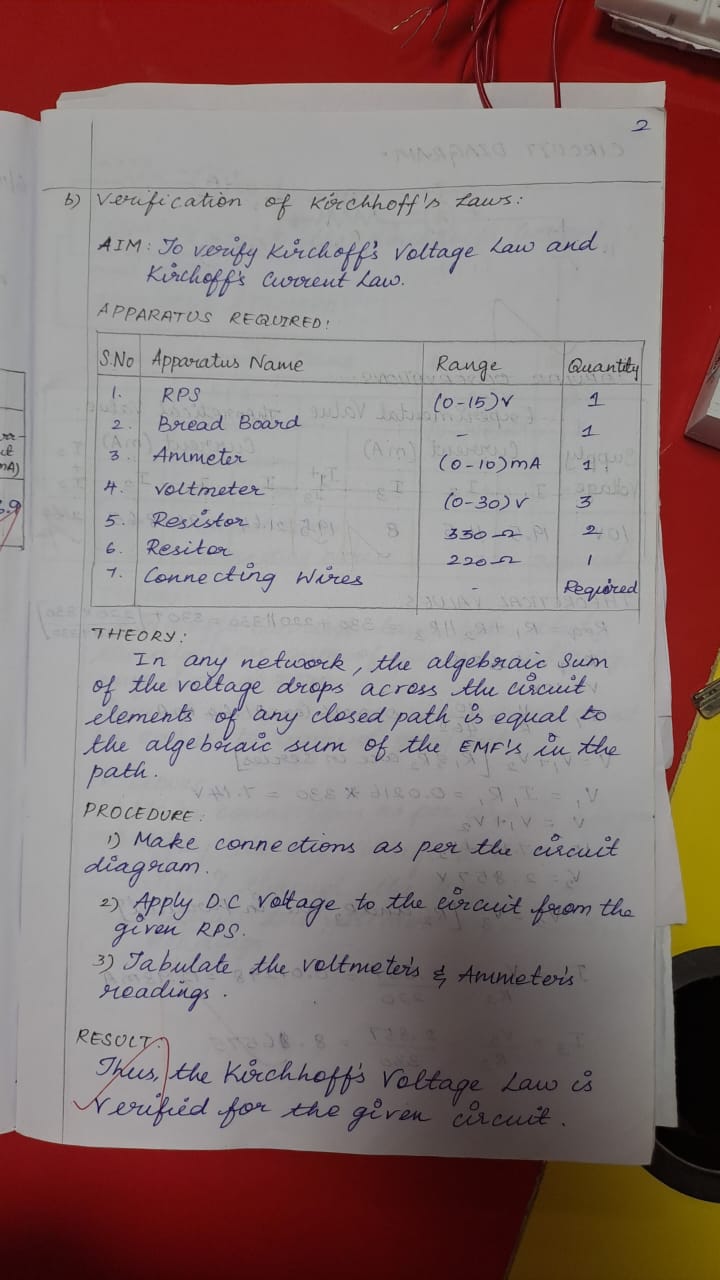 2
b) Verification of Kirchhoff's Laws:
AIM: To verify Kirchoff's Voltage Law and
Kirchoff's Current Law.
APPARATUS REQUIRED:
S.No Apparatus Name Range Quantity
1. RPS (0-15)V 1
2. Bread Board - 1
3. Ammeter (0-10)mA 1
4. Voltmeter (0-30)V 3
5. Resistor 330 Ω 2
6. Resitor 220 Ω 1
7. Connecting Wires - Required
THEORY:
In any network, the algebraic sum
of the voltage drops across the circuit
elements of any closed path is equal to
the algebraic sum of the EMF's in the
path.
PROCEDURE:
1) Make connections as per the circuit
diagram.
2) Apply D.C Voltage to the circuit from the
given RPS.
3) Tabulate the voltmeter's & Ammeter's
readings.
RESULT:
Thus, the Kirchhoff's Voltage Law is
verified for the given circuit.